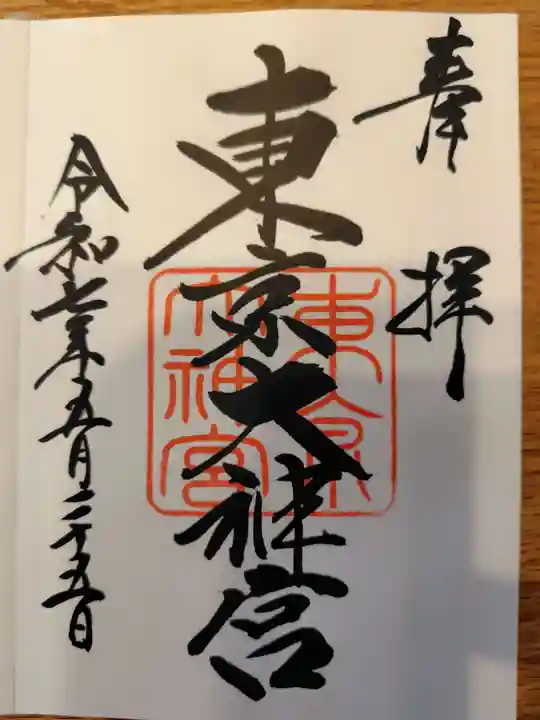 奉拝
東京大神宮
東京大神宮
令和七年五月二十五日